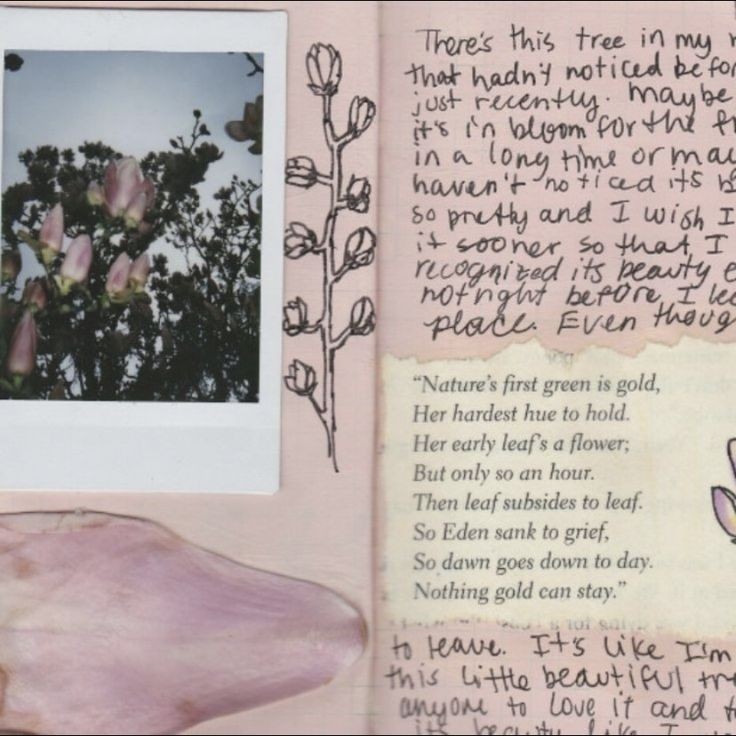 There's this tree in my
that hadn't noticed before
just recently. maybe
it's in bloom for the
in a long time or
haven't noticed its
so pretty and I wish I
it sooner so that I
recognized its beauty
not right before I
place. Even though
"Nature's first green is gold,
Her hardest hue to hold.
Her early leaf's a flower;
But only so an hour.
Then leaf subsides to leaf.
So Eden sank to grief,
So dawn goes down to day.
Nothing gold can stay."
to leave. It's like I'm
this little beautiful
anyone to love it and
its beauty like I